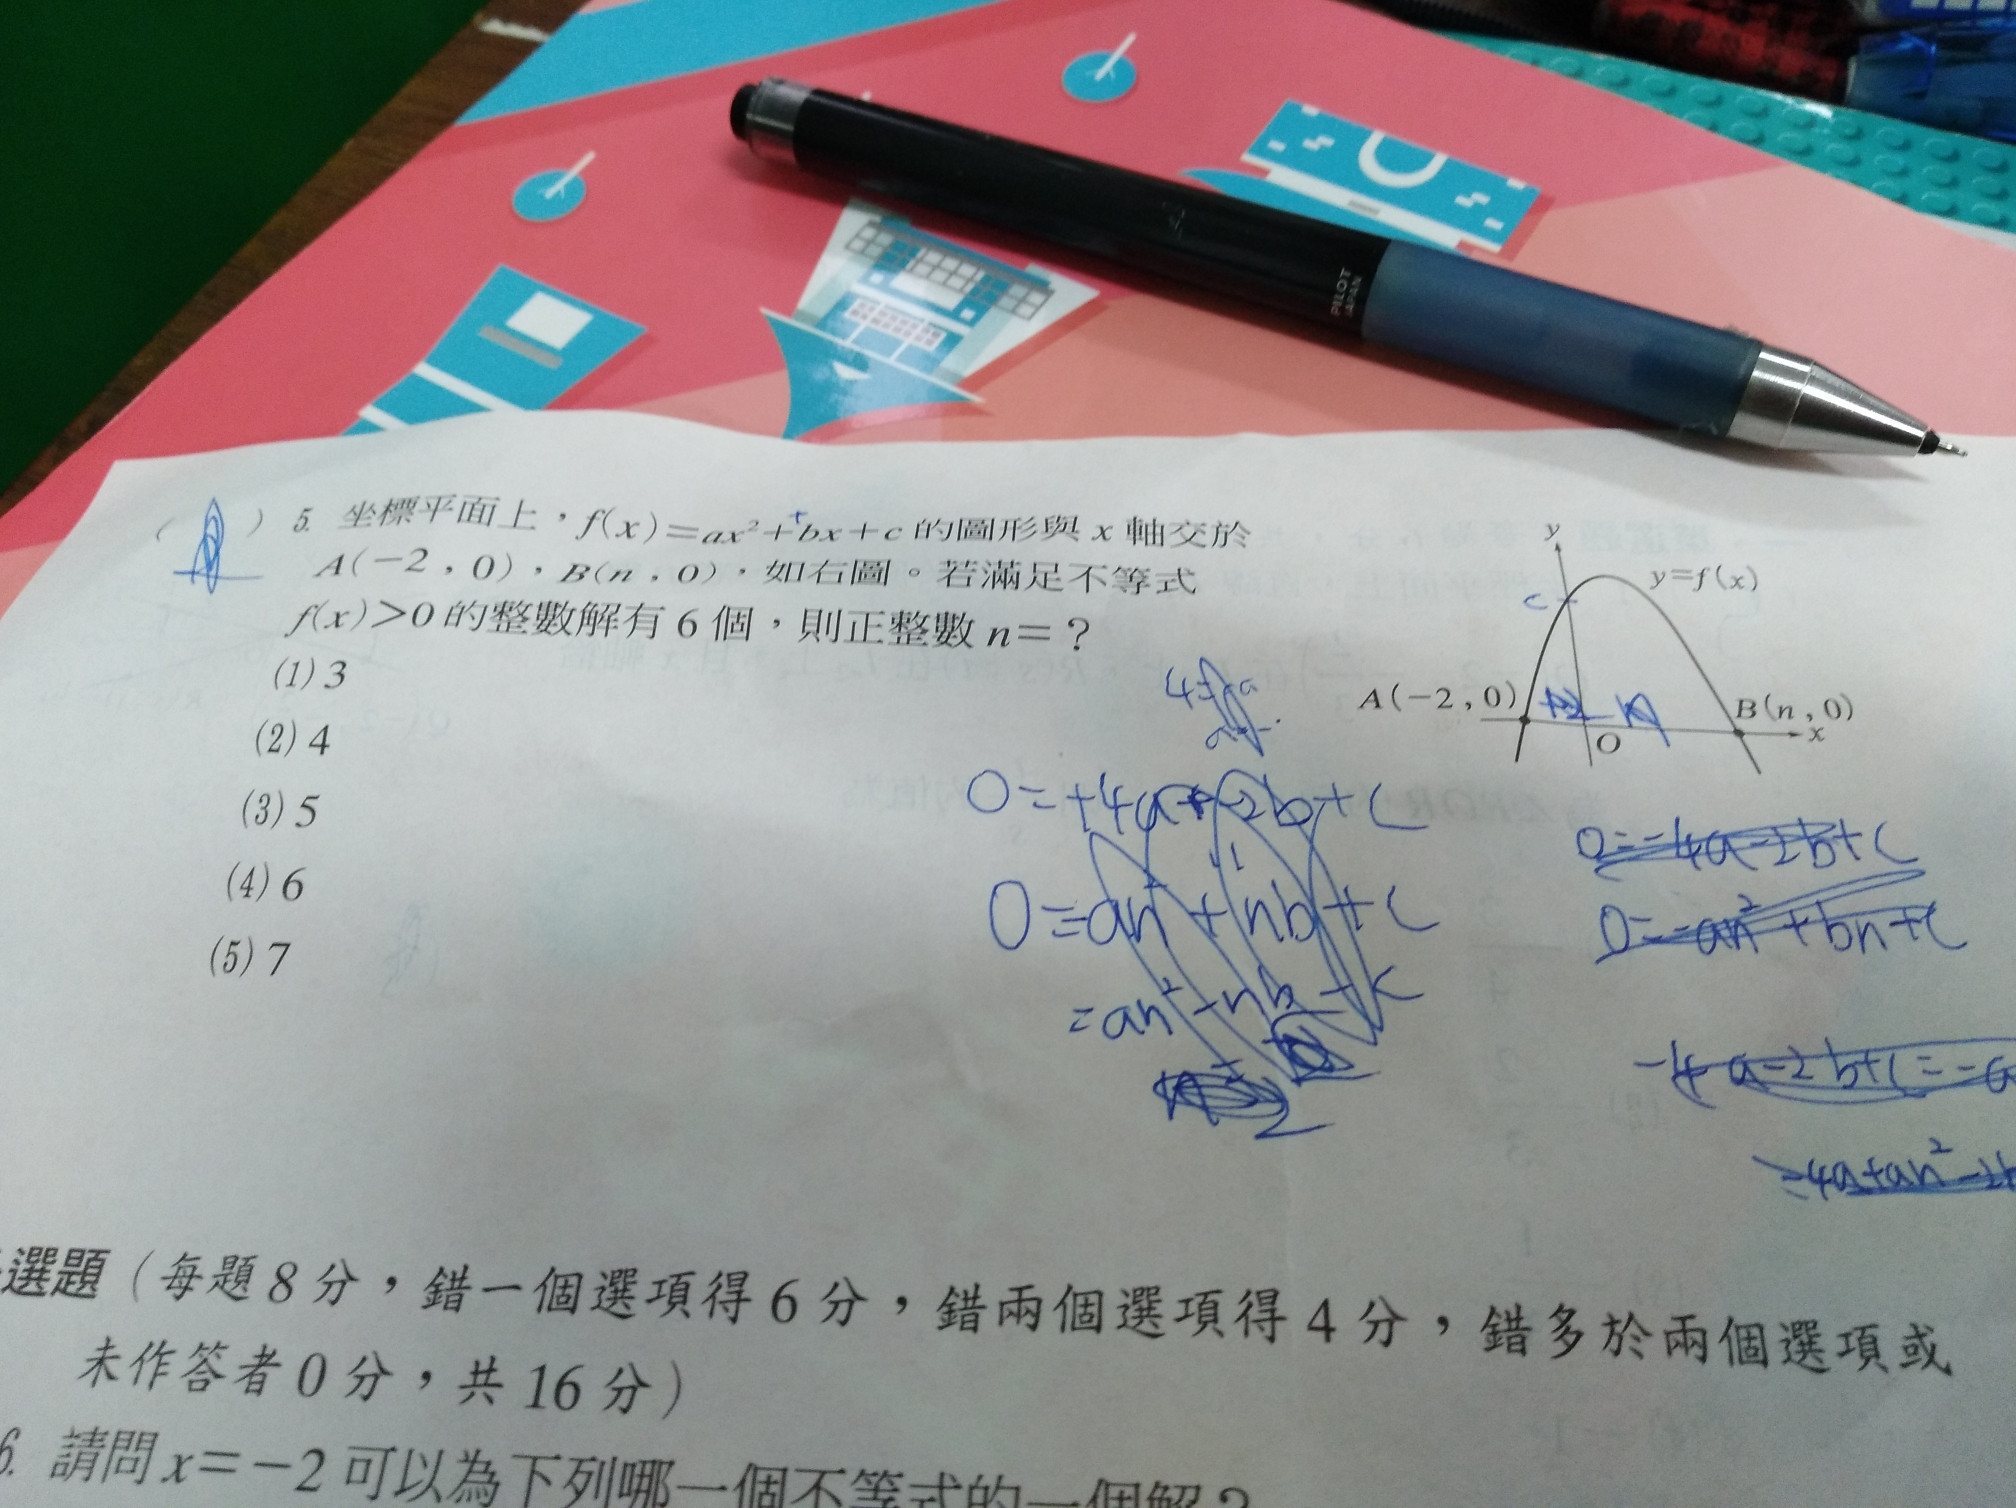 PILOT
JAPAN
( ) 5. 坐標平面上，f(x)=ax²+bx+c 的圖形與 x 軸交於
A(-2，0)，B(n，0)，如右圖。若滿足不等式
f(x)>0 的整數解有 6 個，則正整數 n=？
(1) 3
(2) 4
(3) 5
(4) 6
(5) 7
y
y=f(x)
c
A(-2,0)
B(n,0)
O
x
0=+4a+-2b+c
0=an²+nb+c
=an²+nb+c
0=-4a-2b+c
0=-an²+bn+c
-4a-2b+c=-a
=4a+an²-2b
選題（每題 8 分，錯一個選項得 6 分，錯兩個選項得 4 分，錯多於兩個選項或
未作答者 0 分，共 16 分）
6. 請問 x=-2 可以為下列哪一個不等式的一個解？